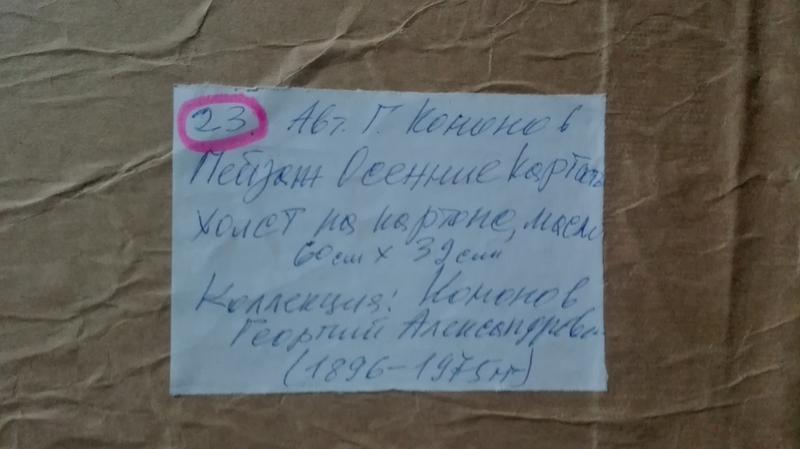 23. Авт. Г. Кононов
Пейзаж Осенние
холст на картоне, масло
60см х 32см
Коллекция: Кононов
Георгий Александрович
(1896-1975гг)